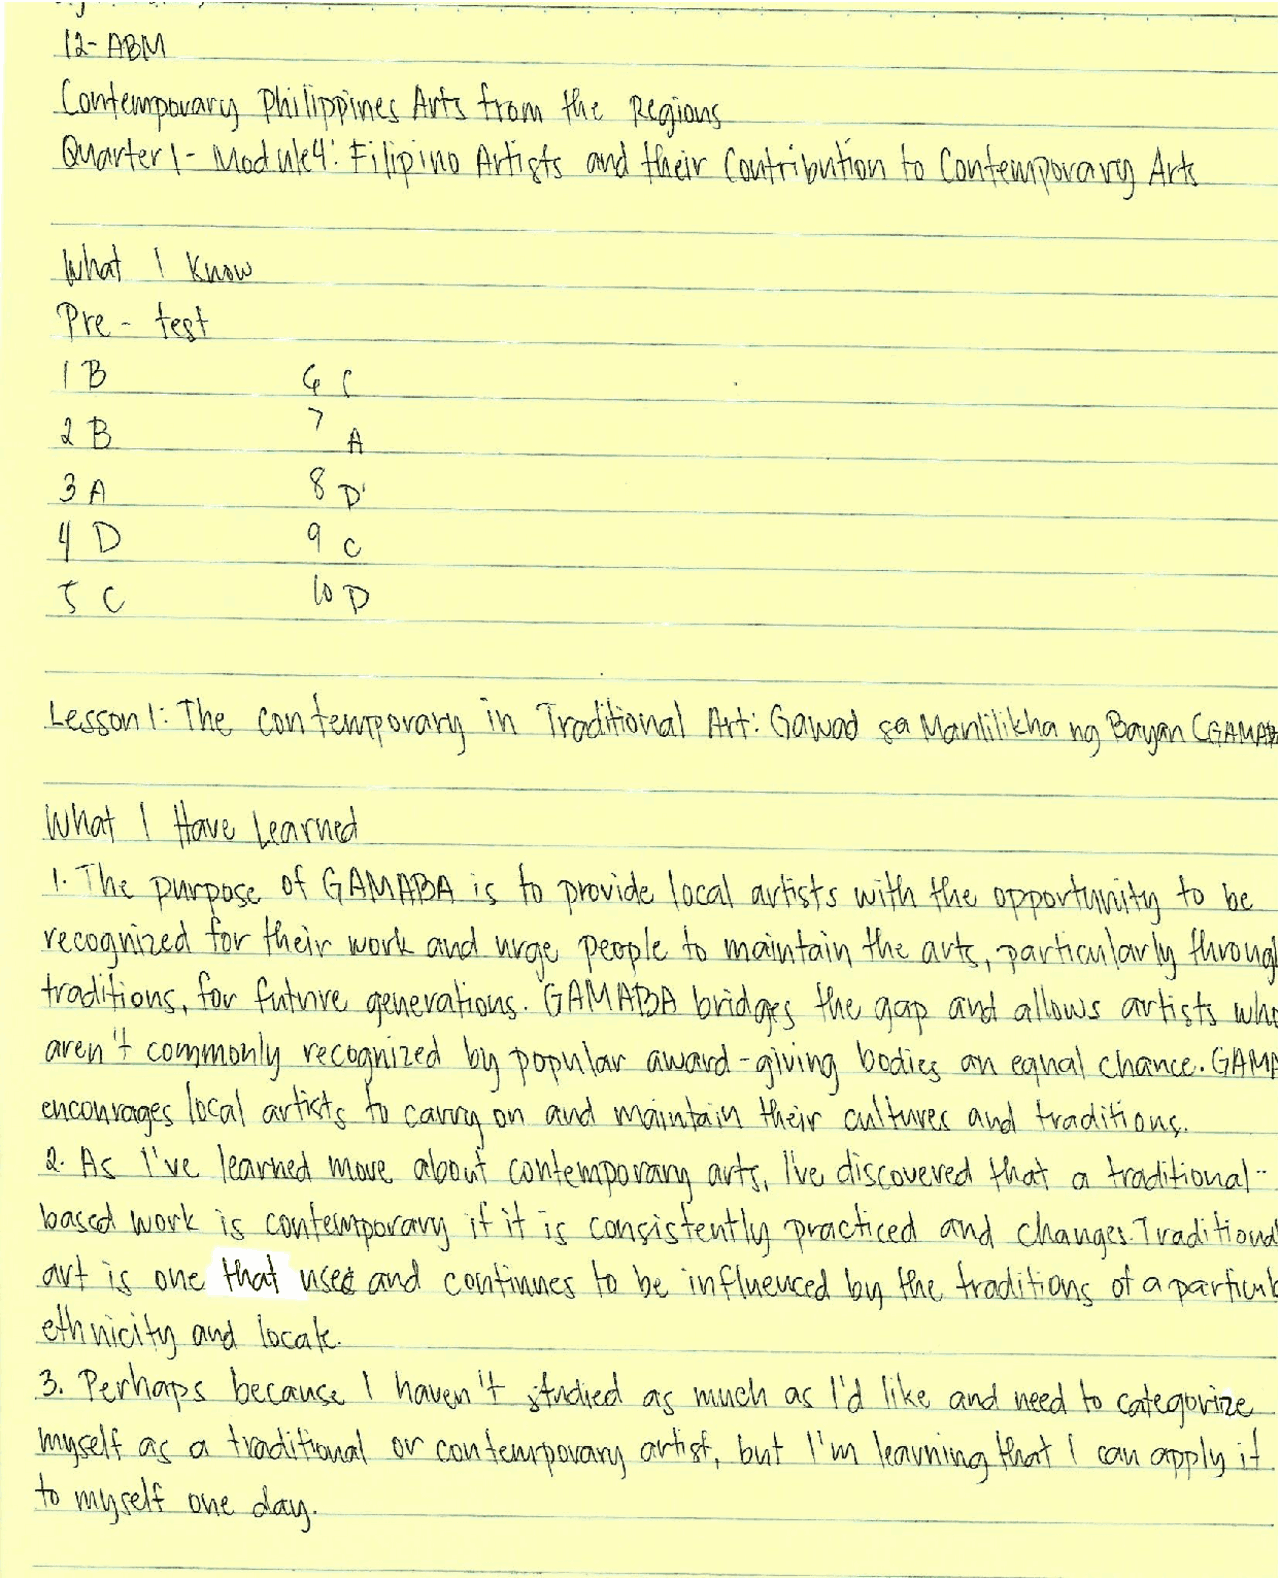 12- ABM
Contemporary Philippines Arts from the Regions
Quarter 1 - Module 4: Filipino Artists and their Contribution to Contemporary Arts
What I Know
Pre - test
1 B 6 C
2 B 7 A
3 A 8 D
4 D 9 C
5 C 10 D
Lesson 1: The Contemporary in Traditional Art: Gawad sa Manlilikha ng Bayan (GAMAB
What I Have Learned
1. The purpose of GAMABA is to provide local artists with the opportunity to be
recognized for their work and urge people to maintain the arts, particularly through
traditions, for future generations. GAMABA bridges the gap and allows artists who
aren't commonly recognized by popular award-giving bodies an equal chance. GAMA
encourages local artists to carry on and maintain their cultures and traditions.
2. As I've learned more about contemporary arts, I've discovered that a traditional-
based work is contemporary if it is consistently practiced and changes. Traditional
art is one that used and continues to be influenced by the traditions of a particul
ethnicity and locale.
3. Perhaps because I haven't studied as much as I'd like and need to categorize
myself as a traditional or contemporary artist, but I'm learning that I can apply it
to myself one day.